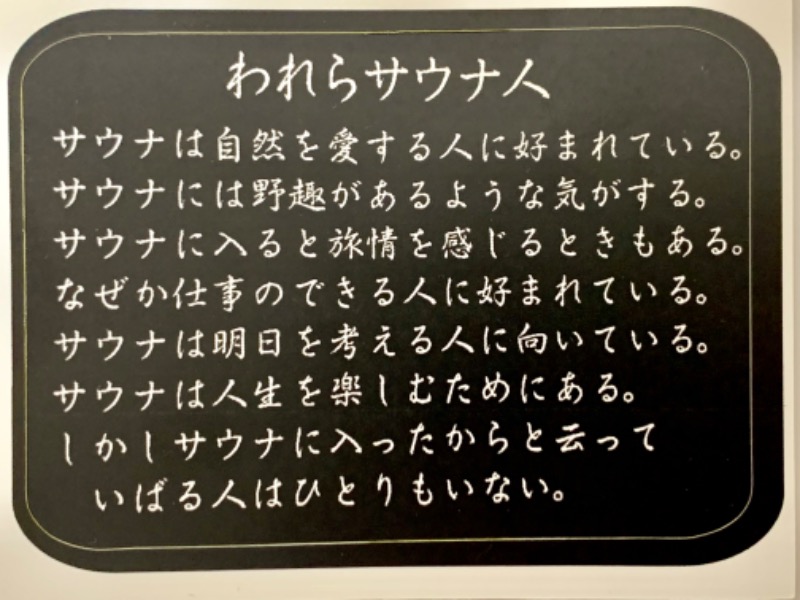 われらサウナ人
サウナは自然を愛する人に好まれている。
サウナには野趣があるような気がする。
サウナに入ると旅情を感じるときもある。
なぜか仕事のできる人に好まれている。
サウナは明日を考える人に向いている。
サウナは人生を楽しむためにある。
しかしサウナに入ったからと云って
いばる人はひとりもいない。